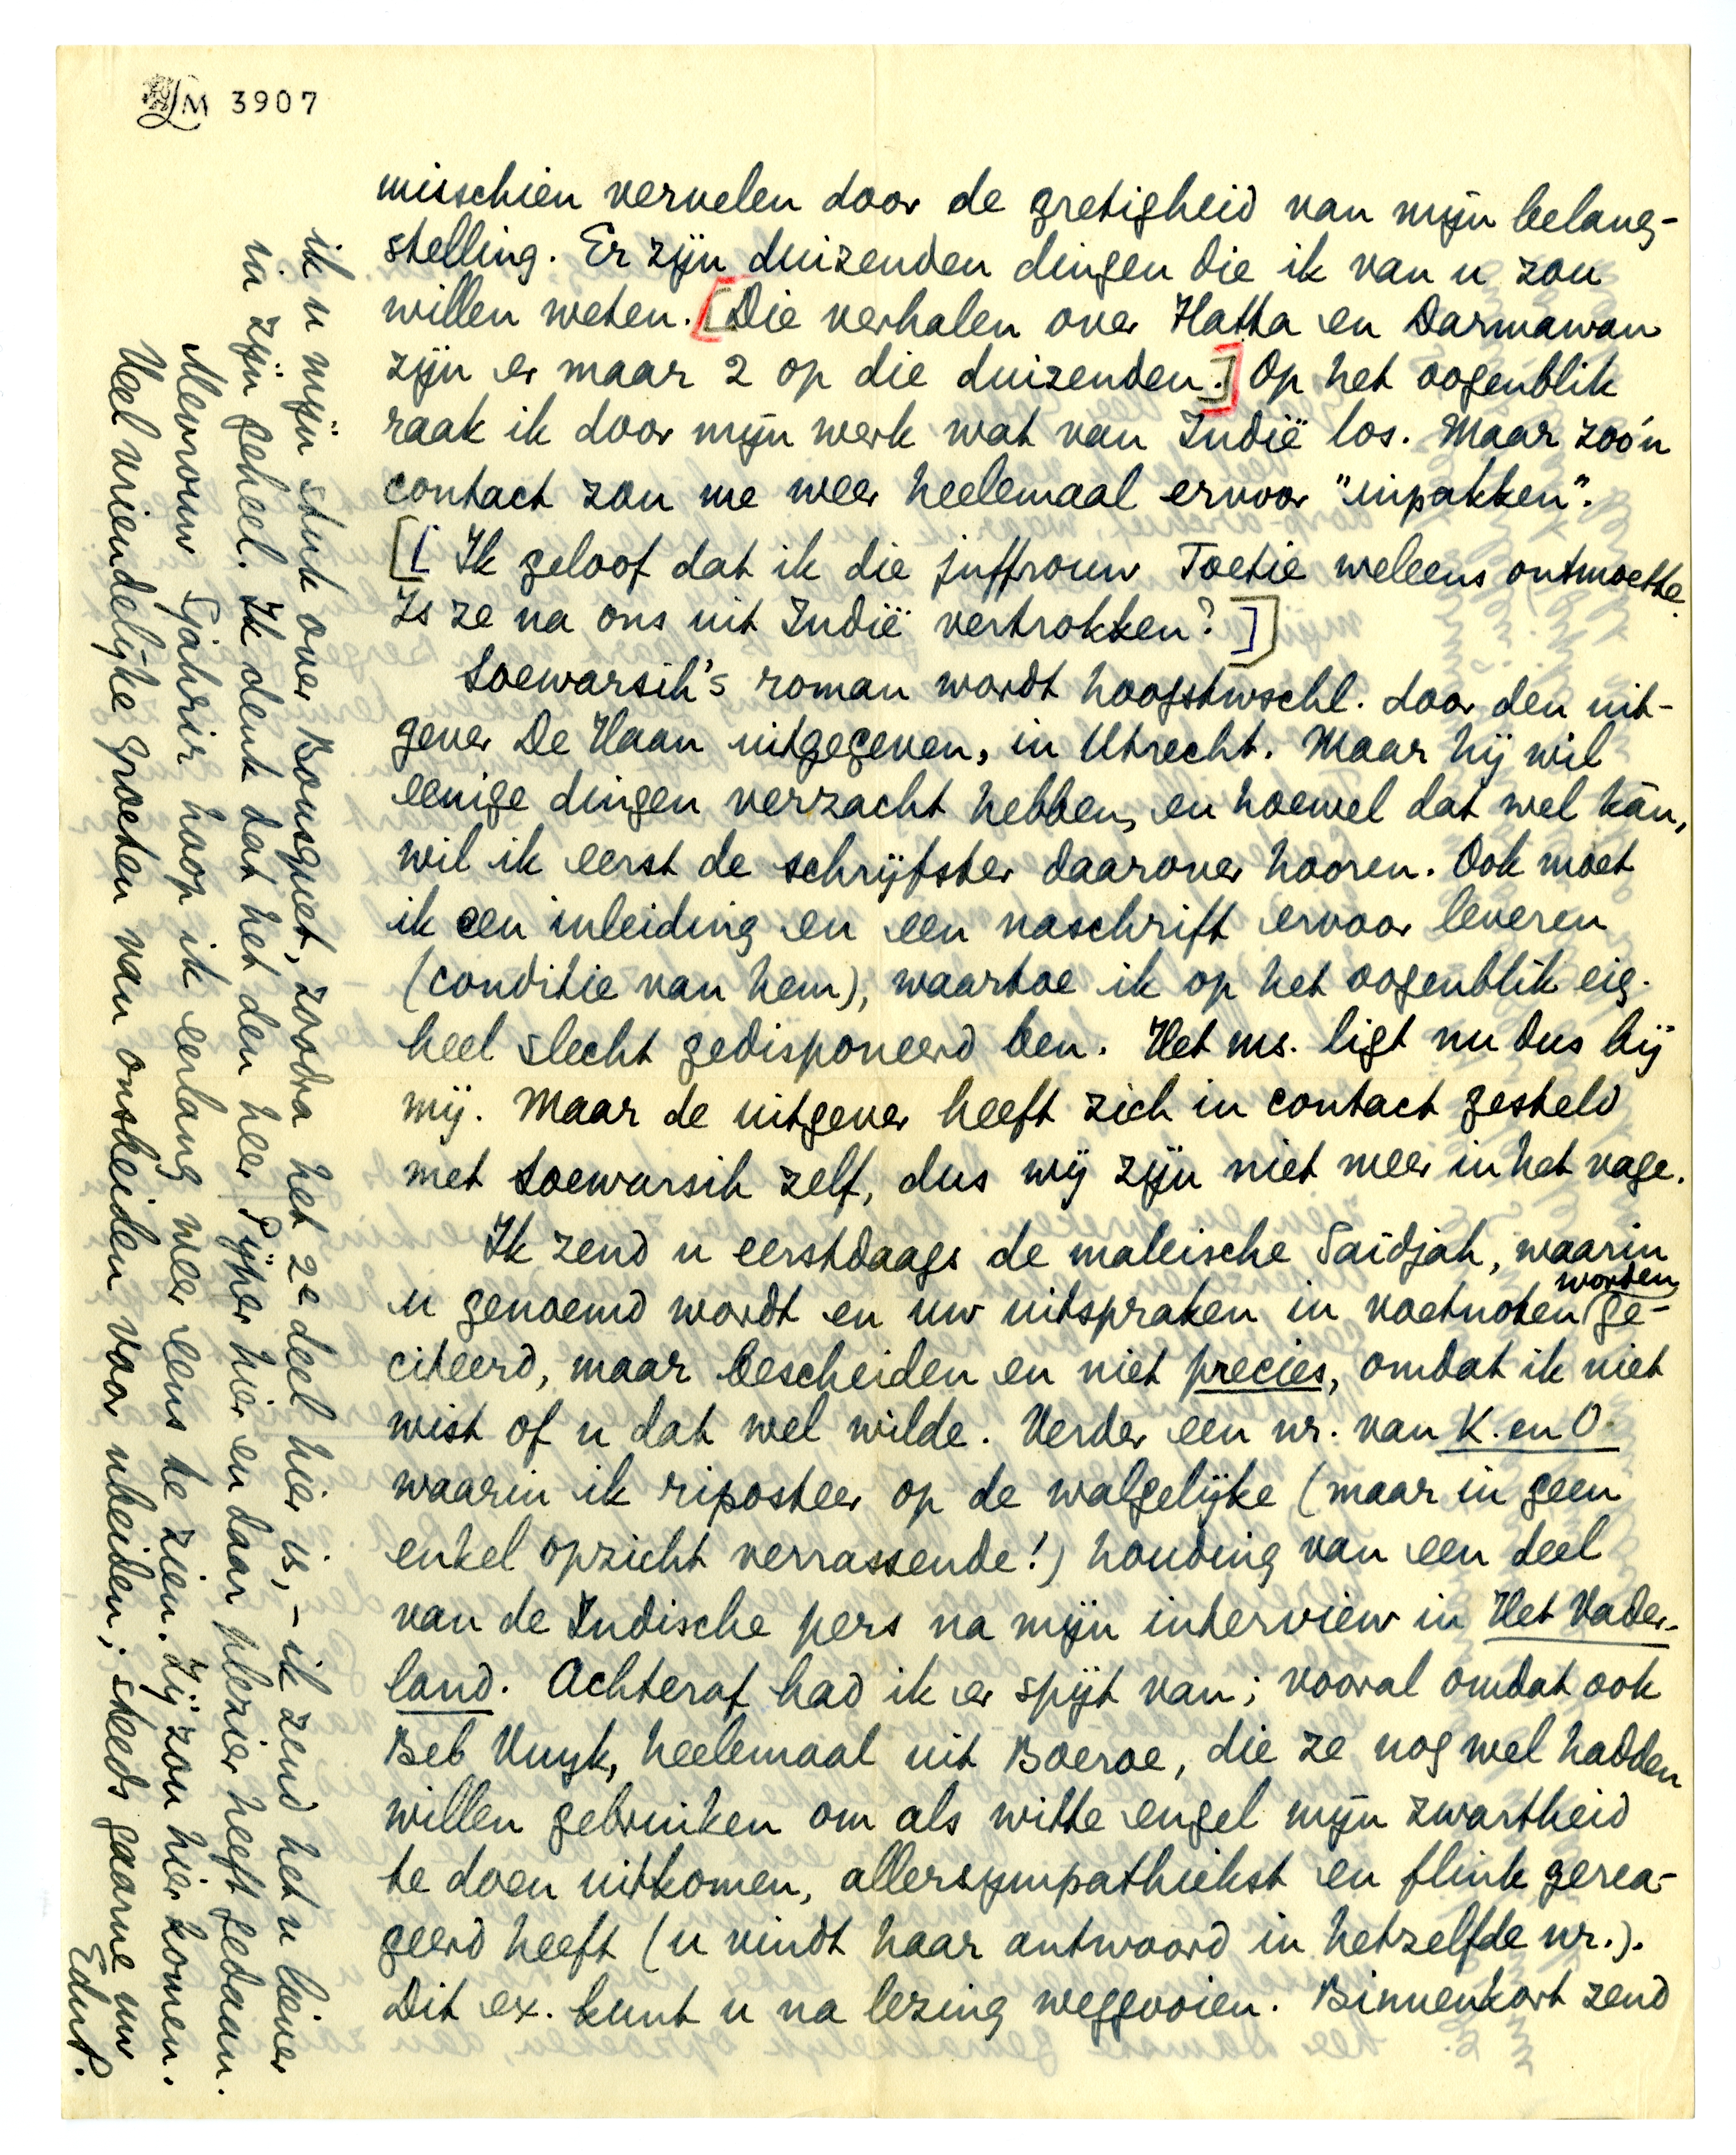 LM 3907
misschien vervelen door de gretigheid van mijn belang-
stelling. Er zijn duizenden dingen die ik van u zou
willen weten. [Die verhalen over Hatta en Darmawan
zijn er maar 2 op die duizenden.] Op het oogenblik
raak ik door mijn werk wat van Indië los. Maar zoo'n
contact zou me weer heelemaal ervoor "inpakken".
[[Ik geloof dat ik die juffrouw Toetie weleens ontmoette.
Is ze na ons uit Indië vertrokken?]]
Soewarsih's roman wordt hoogstwschl. door den uit-
gever De Haan uitgegeven, in Utrecht. Maar hij wil
eenige dingen verzacht hebben, en hoewel dat wel kàn,
wil ik eerst de schrijfster daarover hooren. Ook moet
ik een inleiding en een naschrift ervoor leveren
(conditie van hem), waartoe ik op het oogenblik eig.
heel slecht gedisponeerd ben. Het ms. ligt nu dus bij
mij. Maar de uitgever heeft zich in contact gesteld
met Soewarsih zelf, dus wij zijn niet meer in het vage.
Ik zend u eerstdaags de maleische Saïdjah, waarin
u genoemd wordt en uw uitspraken in voetnoten worden ge-
citeerd, maar bescheiden en niet precies, omdat ik niet
wist of u dat wel wilde. Verder een nr. van K. en O.
waarin ik riposteer op de walgelijke (maar in geen
enkel opzicht verrassende!) houding van een deel
van de Indische pers na mijn interview in Het Vader-
land. Achteraf had ik er spijt van; vooral omdat ook
Beb Vuyk, heelemaal uit Boeroe, die ze nog wel hadden
willen gebruiken om als witte engel mijn zwartheid
te doen uitkomen, allersympathiekst en flink gerea-
geerd heeft (u vindt haar antwoord in hetzelfde nr.).
Dit ex. kunt u na lezing weggooien. Binnenkort zend
ik u mijn stuk over Bousquet, zoodra het 2e deel hier is, – ik zend het u liever
in zijn geheel. Ik denk dat het den heer Pijper hier en daar plezier heeft gedaan.
Mevrouw Sjahrir hoop ik eerlang weer eens te zien. Zij zou hier komen.
Veel vriendelijke groeten van ons beiden voor u beiden; steeds gaarne uw
EduP.